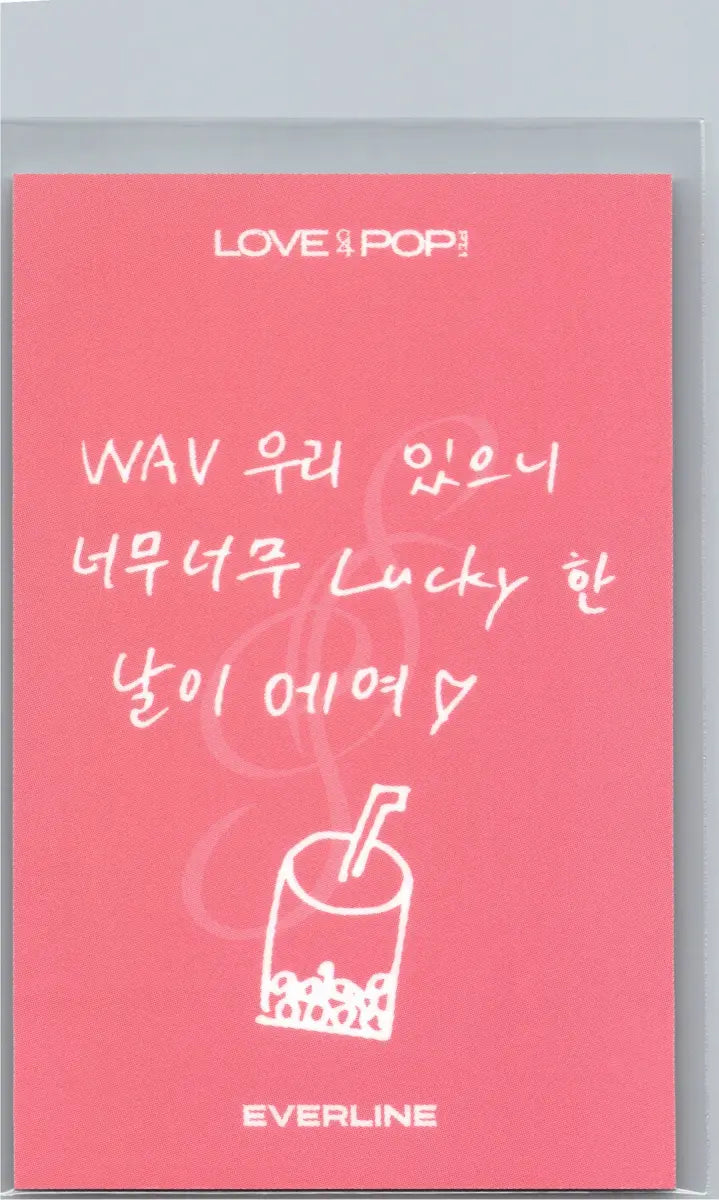 LOVE & POP PT.1
WAV 우리 있으니
너무너무 Lucky 한
날이 에여♡
EVERLINE